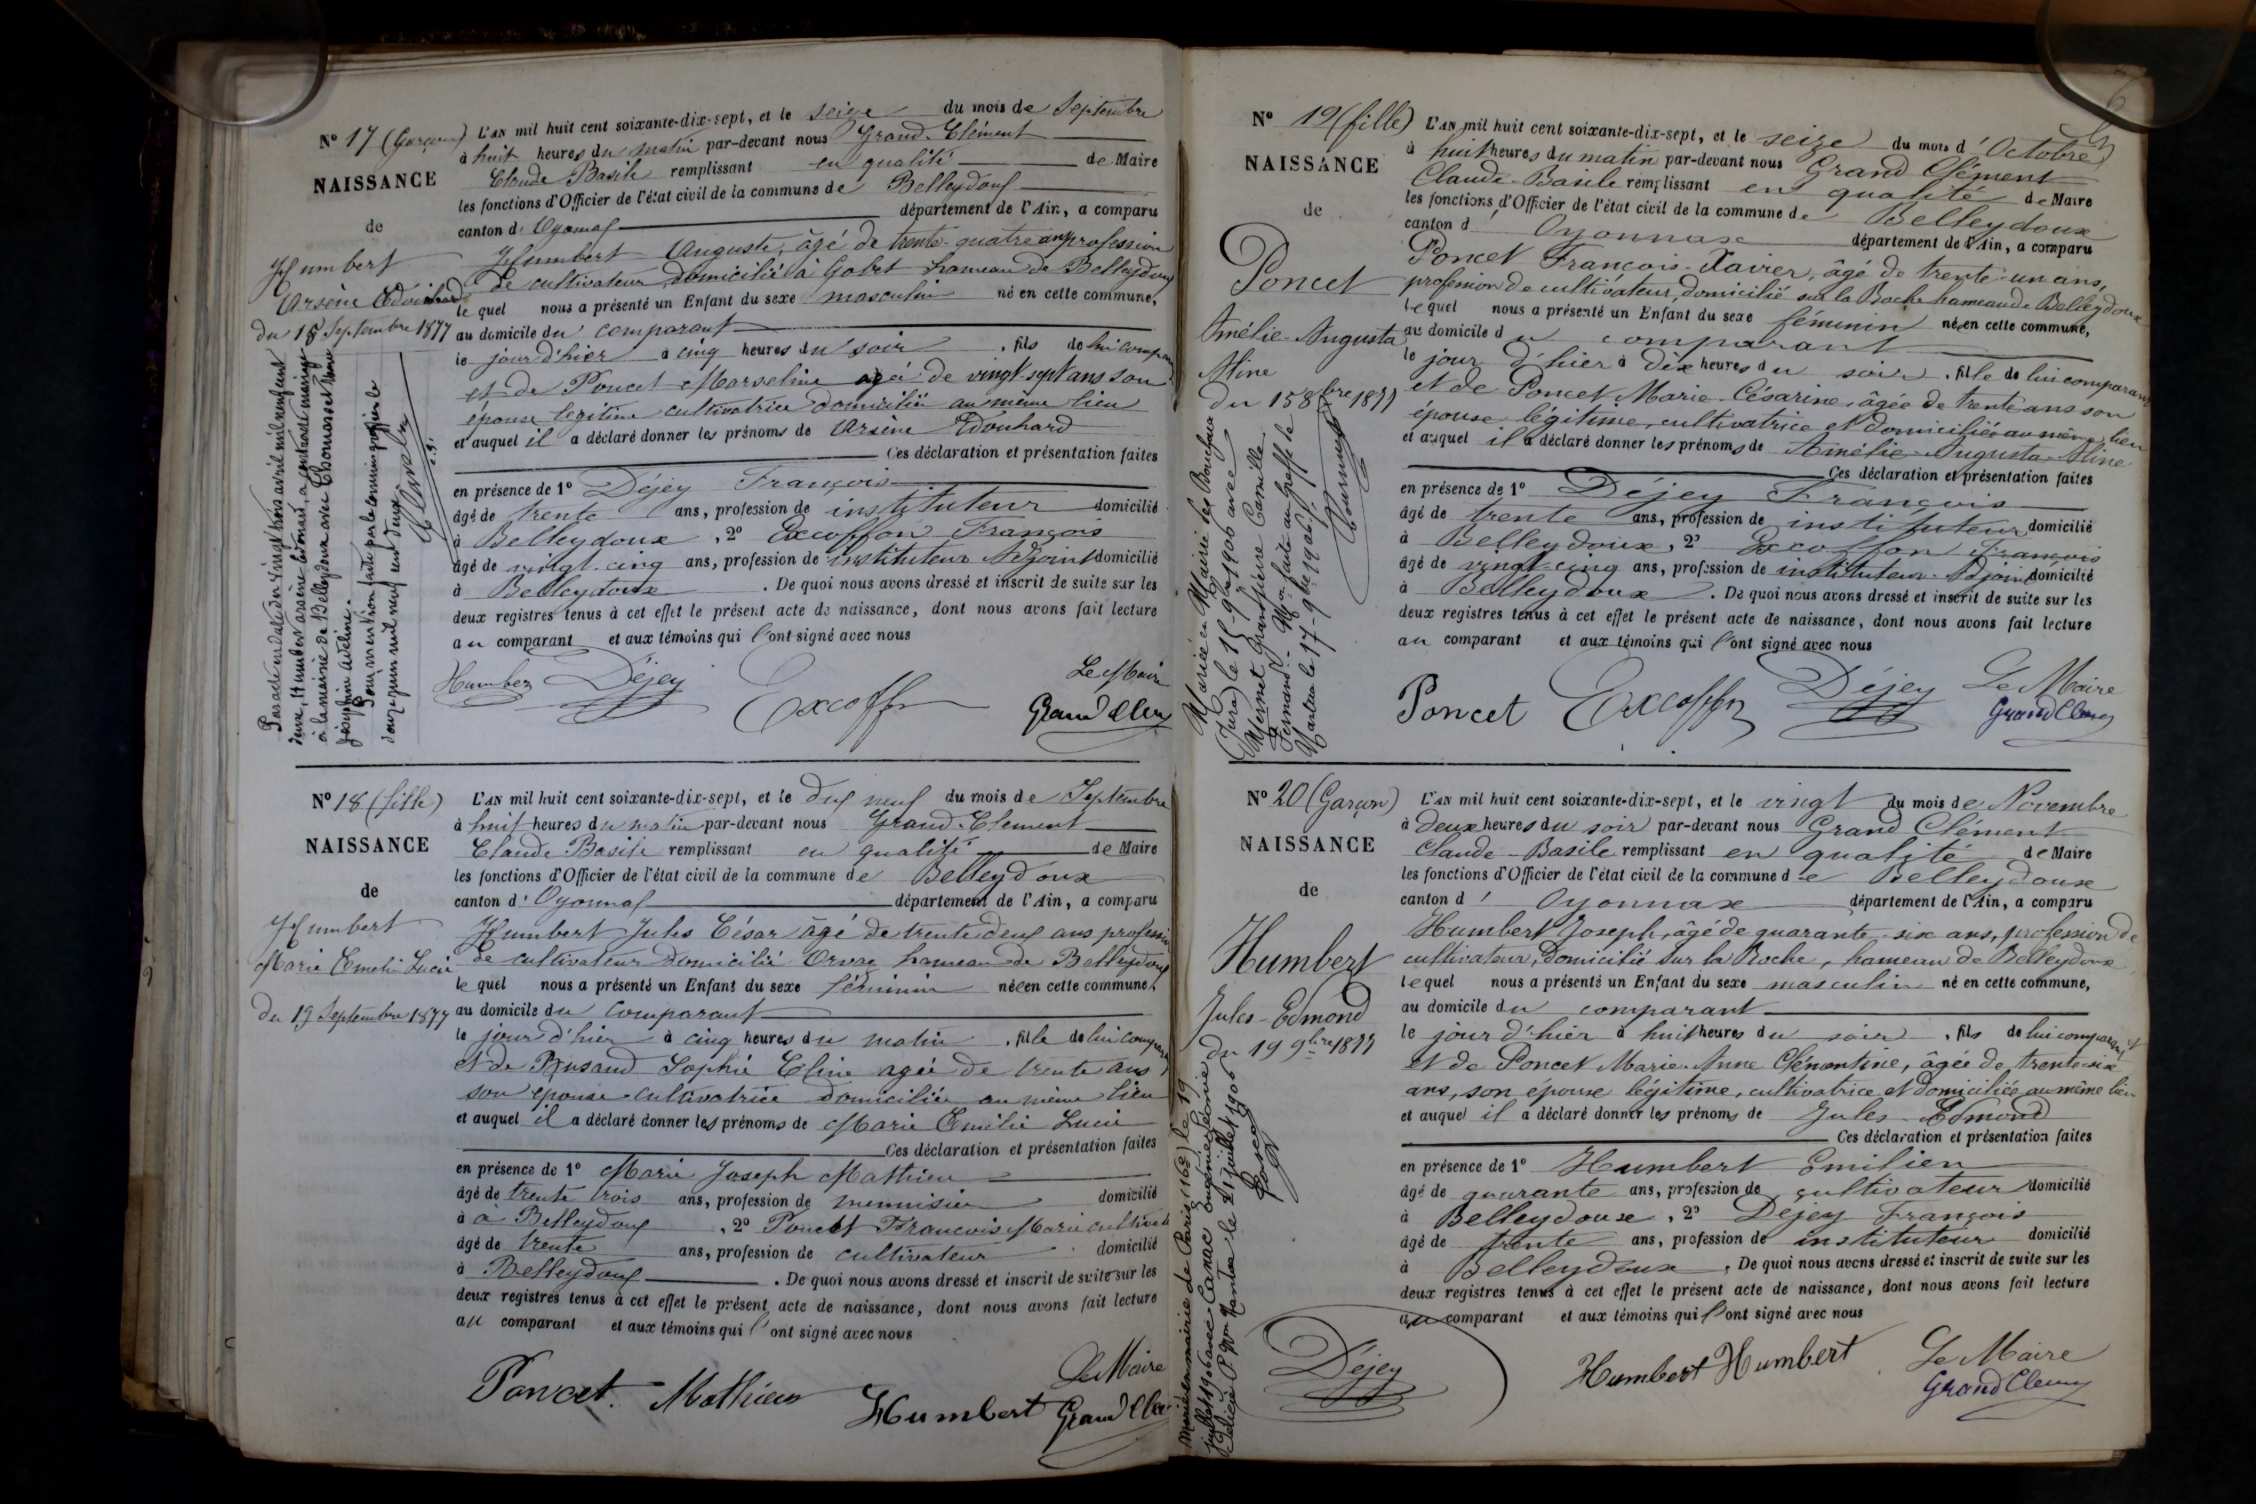 Nº 17 (Garçon)
NAISSANCE
de
Humbert
Arsène Edouhard
du 15 Septembre 1877
L'AN mil huit cent soixante-dix-sept, et le seize du mois de Septembre
à huit heures du matin par-devant nous Grand-Clément
Claude Basile remplissant en qualité de Maire
les fonctions d'Officier de l'état civil de la commune de Belleydoux
canton d'Oyonnax département de l'Ain, a comparu
Humbert Auguste, âgé de trente-quatre ans profession
de cultivateur domicilié à Gobet hameau de Belleydoux
lequel nous a présenté un Enfant du sexe masculin né en cette commune,
au domicile du comparant
le jour d'hier à cinq heures du soir, fils de lui comparant
et de Poncet Marceline agée de vingt sept ans son
épouse légitime cultivatrice domiciliée au même lieu
et auquel il a déclaré donner les prénoms de Arsène Edouhard
Ces déclaration et présentation faites
en présence de 1º Déjey François
âgé de trente ans, profession de instituteur domicilié
à Belleydoux, 2º Excoffon François
âgé de vingt-cinq ans, profession de instituteur Adjoint domicilié
à Belleydoux. De quoi nous avons dressé et inscrit de suite sur les
deux registres tenus à cet effet le présent acte de naissance, dont nous avons fait lecture
au comparant et aux témoins qui l'ont signé avec nous
Humber Déjey Excoffn Le Maire
Grand Clem
Par acte en date du vingt trois avril mil neuf cent
deux, Humbert arsène Edouard, a contracté mariage
à la mairie de Belleydoux avec Thomasset Marie
Joséphine Adeline.
Pour mention faite par le commis greffier le
douze juin mil neuf cent deux
Nº 18 (fille)
NAISSANCE
de
Humbert
Marie Emelie Lucie
du 19 Septembre 1877
L'AN mil huit cent soixante-dix-sept, et le dix neuf du mois de Septembre
à huit heures du matin par-devant nous Grand-Clement
Claude Basile remplissant en qualité de Maire
les fonctions d'Officier de l'état civil de la commune de Belleydoux
canton d'Oyonnax département de l'Ain, a comparu
Humbert Jules César âgé de trente deux ans profession
de cultivateur domicilié Orvaz hameau de Belleydoux
lequel nous a présenté un Enfant du sexe féminin née en cette commune,
au domicile du comparant
le jour d'hier à cinq heures du matin, fille de lui comparant
et de Sophie Céline agée de trente ans
son épouse cultivatrice domiciliée au même lieu
et auquel il a déclaré donner les prénoms de Marie Emilie Lucie
Ces déclaration et présentation faites
en présence de 1º Marie Joseph Mathieu
âgé de trente trois ans, profession de menuisier domicilié
à à Belleydoux, 2º Poncet François Marie cultivate
âgé de trente ans, profession de cultivateur domicilié
à Belleydoux. De quoi nous avons dressé et inscrit de suite sur les
deux registres tenus à cet effet le présent acte de naissance, dont nous avons fait lecture
au comparant et aux témoins qui l'ont signé avec nous
Poncet Mathieu Humbert Le Maire
Grand Clem
6
Nº 19 (fille)
NAISSANCE
de
Poncet
Amélie-Augusta
Aline
du 15 8bre 1877
L'AN mil huit cent soixante-dix-sept, et le seize du mois d'Octobre
à huit heures du matin par-devant nous Grand Clément
Claude-Basile remplissant en qualité de Maire
les fonctions d'Officier de l'état civil de la commune de Belleydoux
canton d'Oyonnax département de l'Ain, a comparu
Poncet François-Xavier, âgé de trente-un ans,
profession de cultivateur, domicilié sur la Roche hameau de Belleydoux
lequel nous a présenté un Enfant du sexe féminin née en cette commune,
au domicile du comparant
le jour d'hier à dix heures du soir, fille de lui comparant
et de Poncet Marie-Césarine, âgée de trente ans son
épouse légitime, cultivatrice et domiciliée au même lieu
et auquel il a déclaré donner les prénoms de Amélie-Augusta-Aline
Ces déclaration et présentation faites
en présence de 1º Déjey François
âgé de trente ans, profession de instituteur domicilié
à Belleydoux, 2º Excoffon François
âgé de vingt-cinq ans, profession de instituteur-Adjoint domicilié
à Belleydoux. De quoi nous avons dressé et inscrit de suite sur les
deux registres tenus à cet effet le présent acte de naissance, dont nous avons fait lecture
au comparant et aux témoins qui l'ont signé avec nous
Poncet Excoffn Déjey Le Maire
Grand Clem
Mariée en Mairie des Bouchoux
(Jura) le 15-9bre 1906 avec
Mermet Grandpierre Camille
Fernand. - Mon faite au greffe de
Nantua le 17-9bre 1906
Nº 20 (Garçon)
NAISSANCE
de
Humbert
Jules-Edmond
du 19 9bre 1877
L'AN mil huit cent soixante-dix-sept, et le vingt du mois de Novembre
à deux heures du soir par-devant nous Grand Clément
Claude-Basile remplissant en qualité de Maire
les fonctions d'Officier de l'état civil de la commune de Belleydoux
canton d'Oyonnax département de l'Ain, a comparu
Humbert Joseph, âgé de quarante-six ans, profession de
cultivateur, domicilié sur la Roche, hameau de Belleydoux
lequel nous a présenté un Enfant du sexe masculin né en cette commune,
au domicile du comparant
le jour d'hier à huit heures du soir, fils de lui comparant
et de Poncet Marie-Anne Clémentine, âgée de trente-six
ans, son épouse légitime, cultivatrice et domiciliée au même lieu
et auquel il a déclaré donner les prénoms de Jules-Edmond
Ces déclaration et présentation faites
en présence de 1º Humbert Emilien
âgé de quarante ans, profession de cultivateur domicilié
à Belleydoux, 2º Déjey François
âgé de trente ans, profession de instituteur domicilié
à Belleydoux. De quoi nous avons dressé et inscrit de suite sur les
deux registres tenus à cet effet le présent acte de naissance, dont nous avons fait lecture
au comparant et aux témoins qui l'ont signé avec nous
Déjey Humbert Humbert Le Maire
Grand Clem
Marié en mairie de Paris (16e) le 19
juillet 1906 avec Canac Eugénie
Nantua le 21 juillet 1906